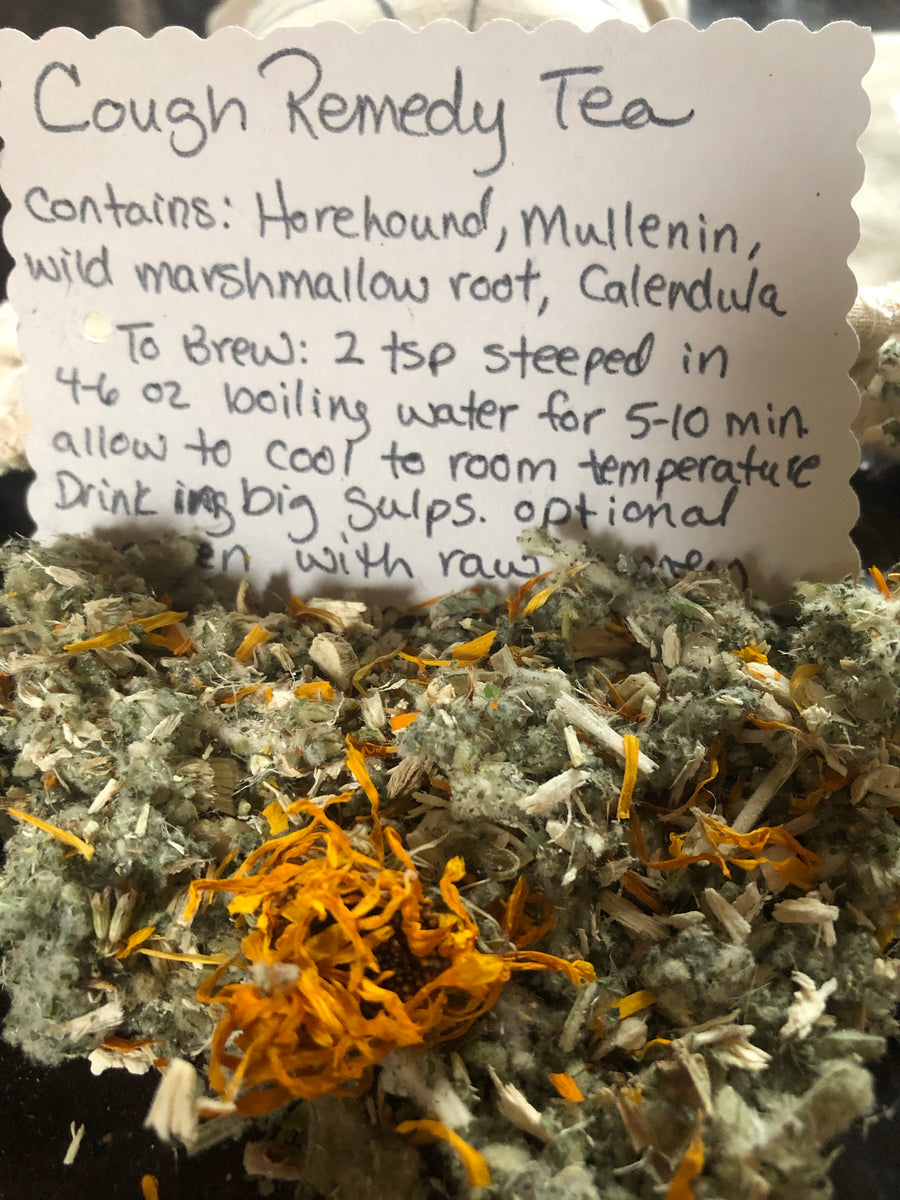 Cough Remedy Tea
Contains: Horehound, Mullenin,
wild marshmallow root, Calendula
To Brew: 2 tsp steeped in
4-6 oz boiling water for 5-10 min.
allow to cool to room temperature
Drink in big gulps. optional
with raw